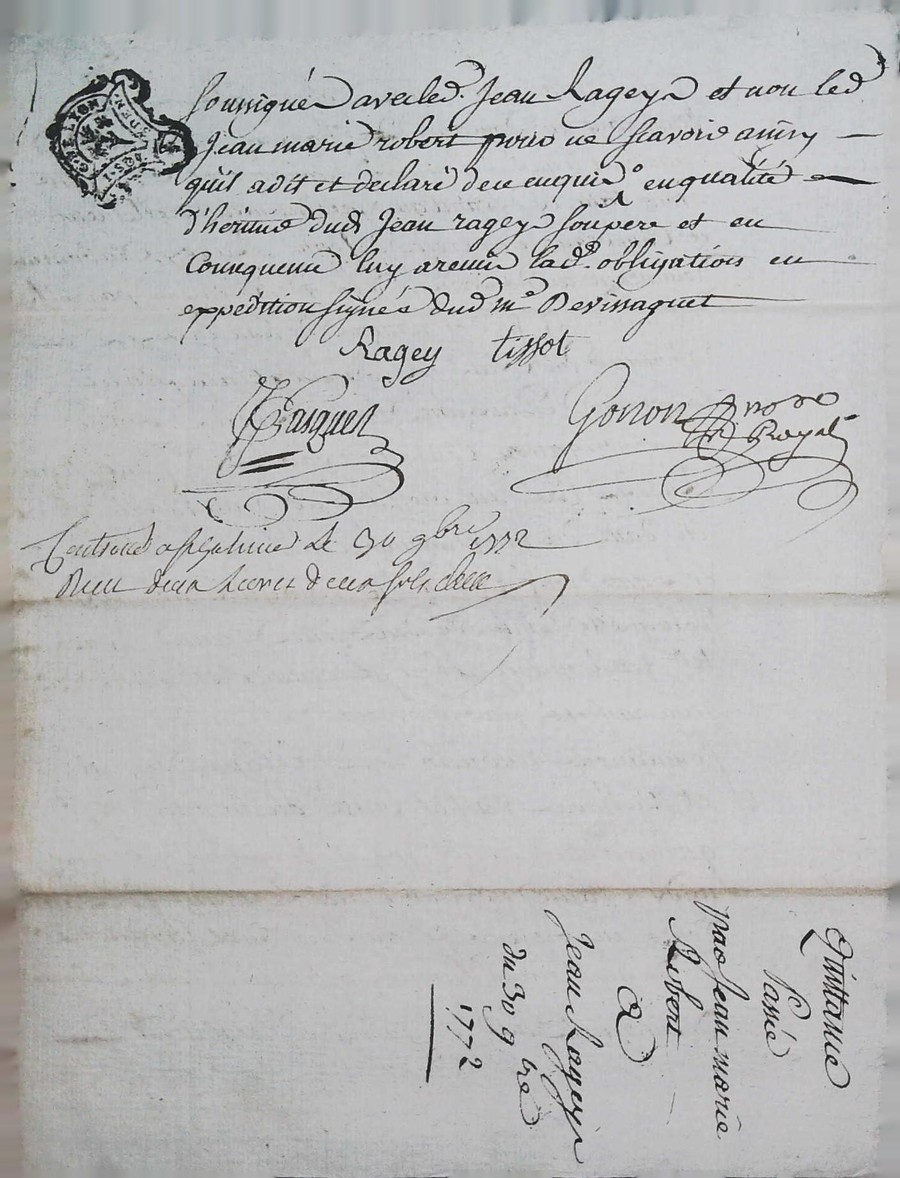 soussigné avec led. Jean Ragey et non led
Jean marie robert pour ne scavoir ainsy
qu'il a dit et declaré de ce enquis en qualité
d'héritié dud Jean ragey son pere et en
Consequence luy a remis lad. obligations en
expedition signée dud me Devissaguet
Ragey tissot
Gonon no re
Royal
Controllé a le 30 9bre 1772
Recu
Quittance
Passé
par Jean marie
Robert
a
Jean Ragey
du 30 9
bre
1772